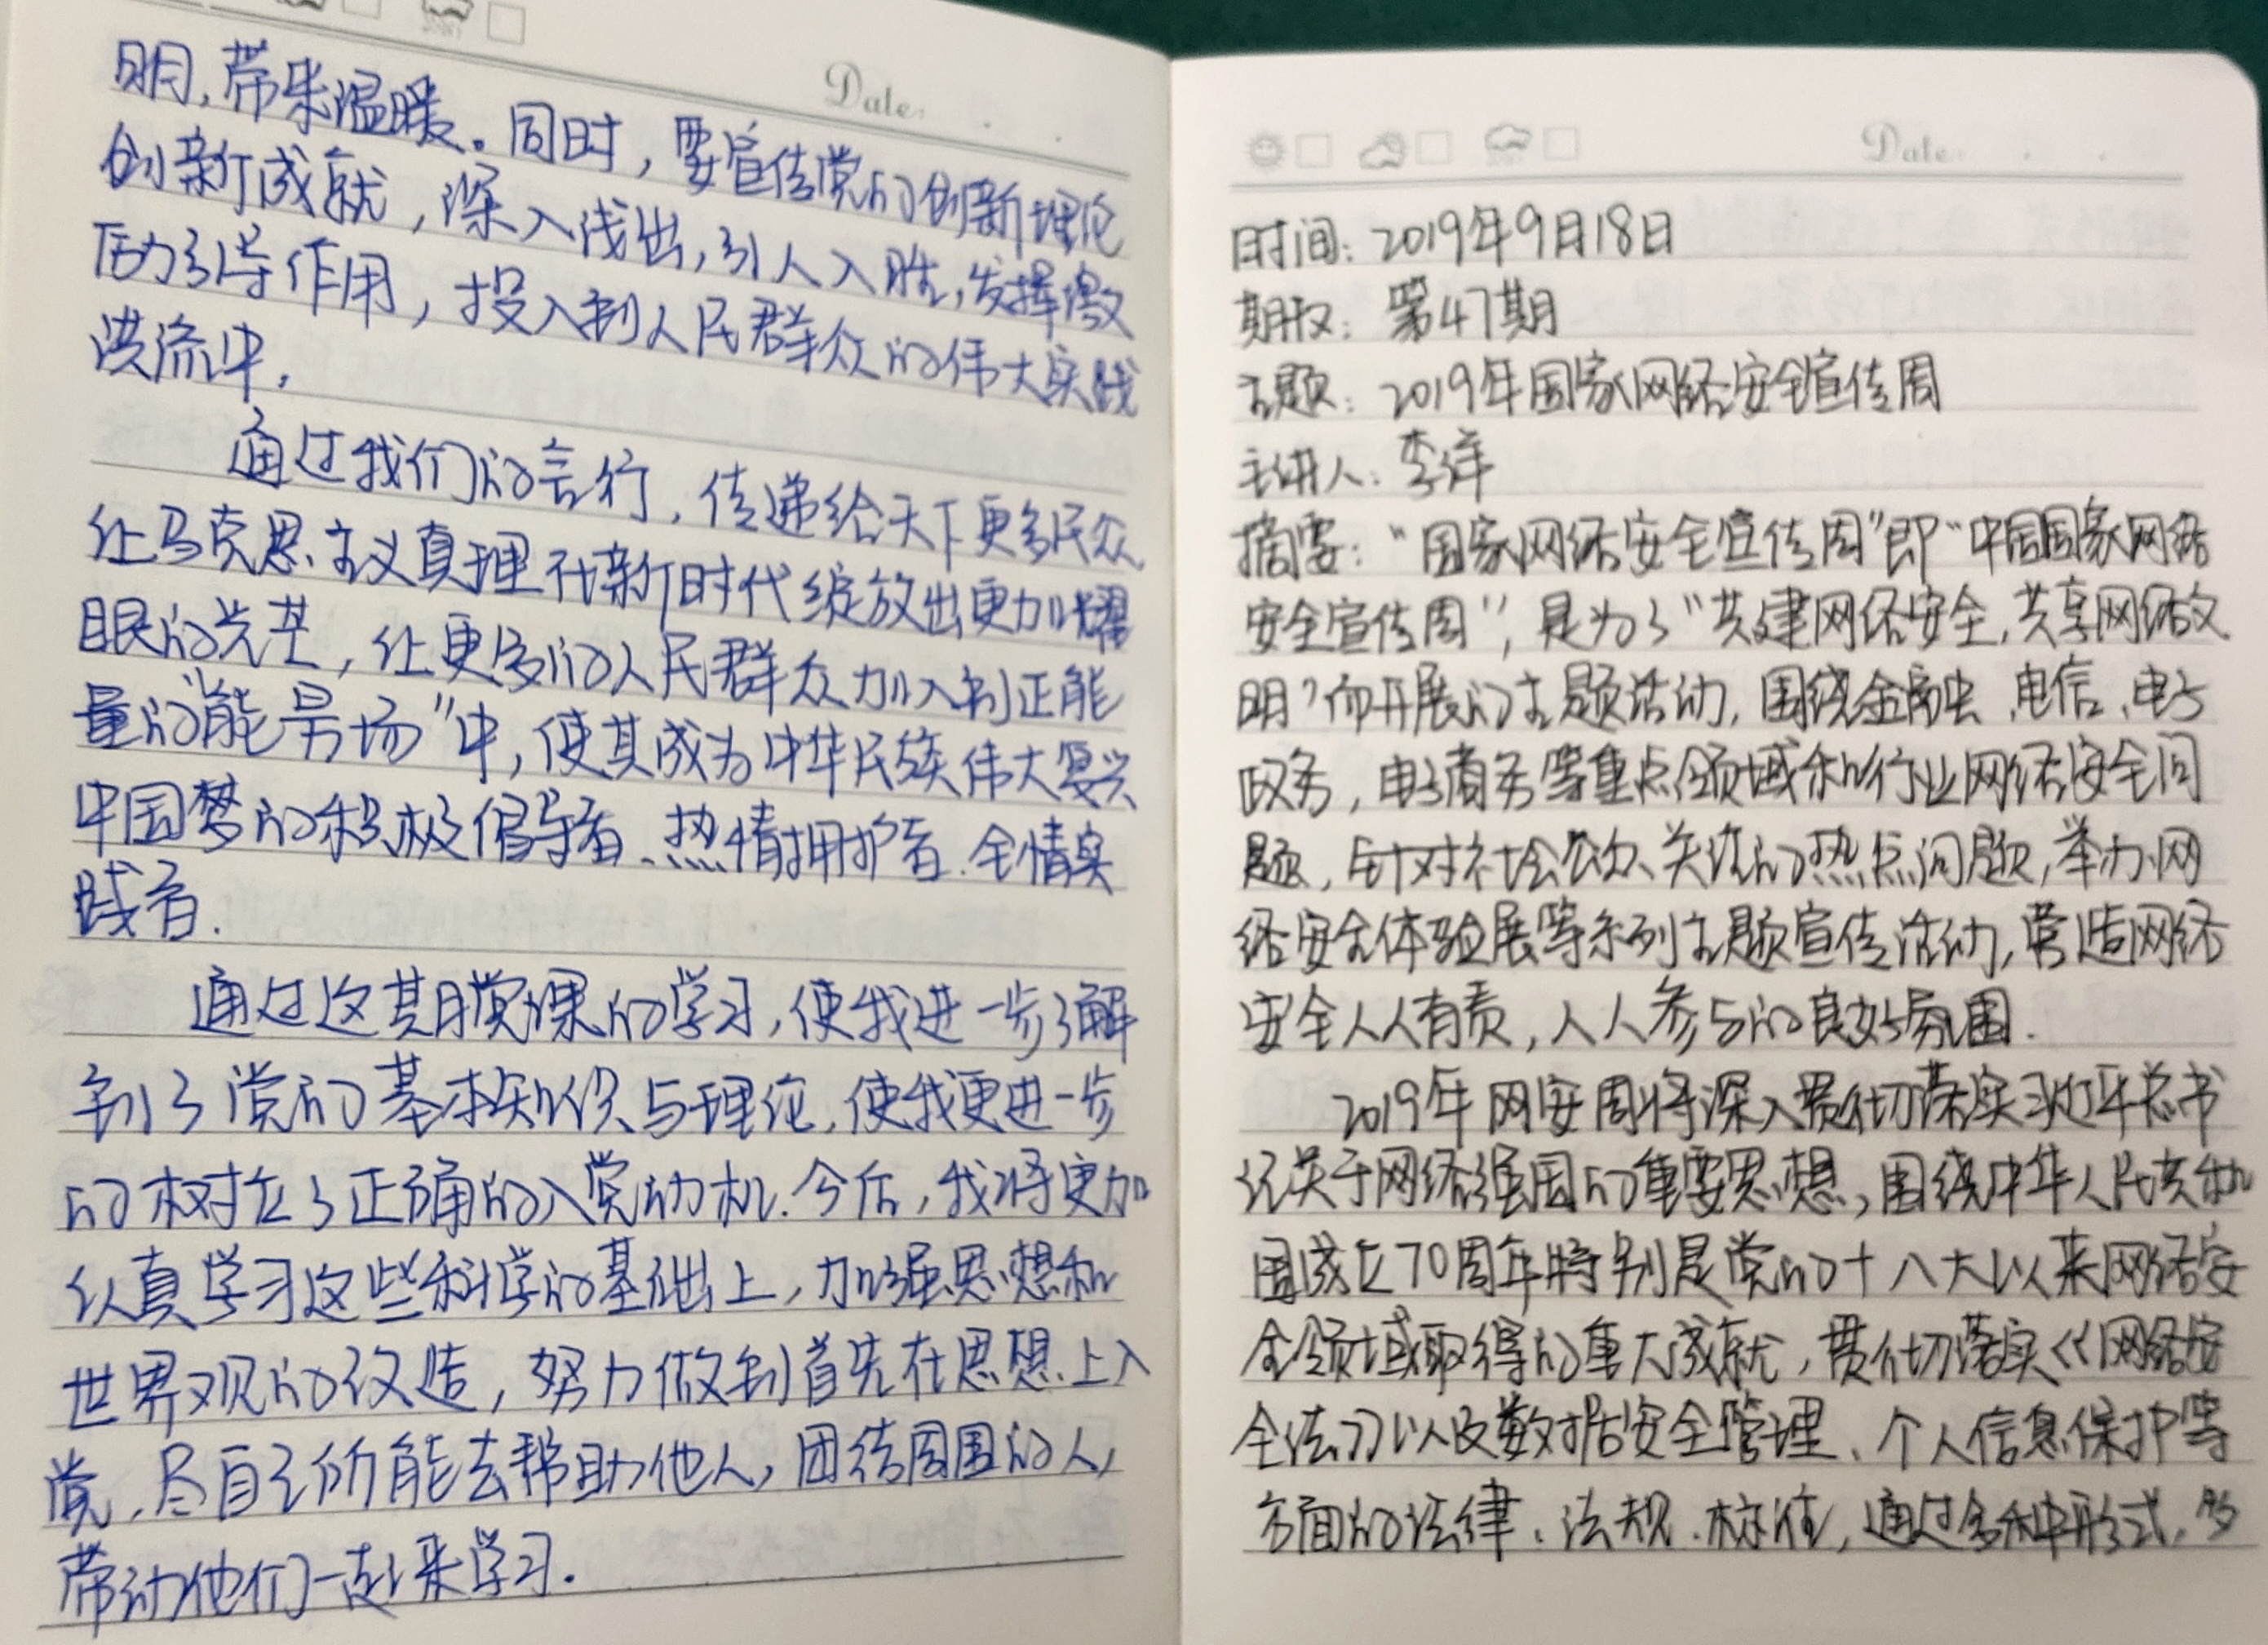 Date:
明,带来温暖。同时,要宣传党的创新理论
创新成就,深入浅出,引人入胜,发挥激
励引导作用,投入到人民群众的伟大实践
洪流中.
通过我们的言行,传递给天下更多民众
让马克思主义真理在新时代绽放出更加耀
眼的光芒,让更多的人民群众加入到正能
量的"能量场"中,使其成为中华民族伟大复兴
中国梦的积极倡导者、热情拥护者.全情实
践者.
通过这期党课的学习,使我进一步了解
到了党的基本知识与理论,使我更进一步
的树立了正确的入党动机.今后,我将更加
认真学习这些科学的基础上,加强思想和
世界观的改造,努力做到首先在思想上入
党,尽自己所能去帮助他人,团结周围的人,
带动他们一起来学习.
Date:
时间:2019年9月18日
期权:第47期
主题:2019年国家网络安全宣传周
主讲人:李洋
摘要:"国家网络安全宣传周"即"中国国家网络
安全宣传周",是为了"共建网络安全,共享网络文
明"而开展的主题活动,围绕金融、电信、电子
政务,电子商务等重点领域和行业网络安全问
题,针对社会公众关注的热点问题,举办网
络安全体验展等系列主题宣传活动,营造网络
安全人人有责,人人参与的良好氛围.
2019年网安周将深入贯彻落实习近平总书
记关于网络强国的重要思想,围绕中华人民共和
国成立70周年特别是党的十八大以来网络安
全领域取得的重大成就,贯彻落实《网络安
全法》以及数据安全管理、个人信息保护等
方面的法律、法规.标准,通过多种形式,多